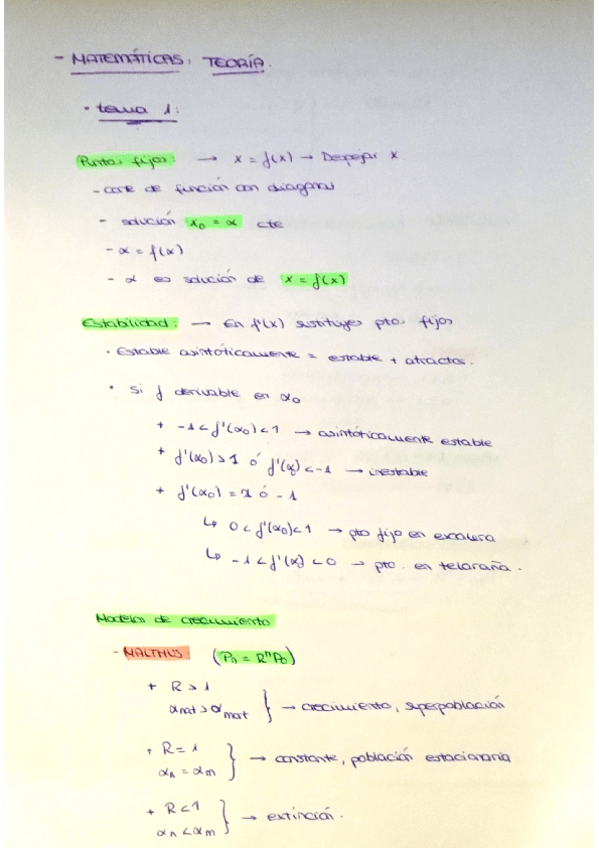 - MATEMÁTICAS, TEORÍA.
· tema 1:
Puntos fijos: → x = f(x) → Despejar x
- corte de función con diagonal
- solución x₀ = α cte
- α = f(α)
- α es solución de x = f(x)
Estabilidad: → En f'(x) sustituyes ptos fijos
· Estable asintóticamente = estable + atractor.
· Si f derivable en α₀
+ -1 < f'(α₀) < 1 → asintóticamente estable
+ f'(α₀) > 1 ó f'(α₀) < -1 → inestable
+ f'(α₀) = 1 ó -1
↳ 0 < f'(α₀) < 1 → pto fijo en escalera
↳ -1 < f'(α) < 0 → pto. en telaraña.
Modelos de crecimiento
- MALTHUS: (Pn = RⁿP₀)
+ R > 1
αnat > αmort } → crecimiento, superpoblación
+ R = 1
αn = αm } → constante, población estacionaria
+ R < 1
αn < αm } → extinción.